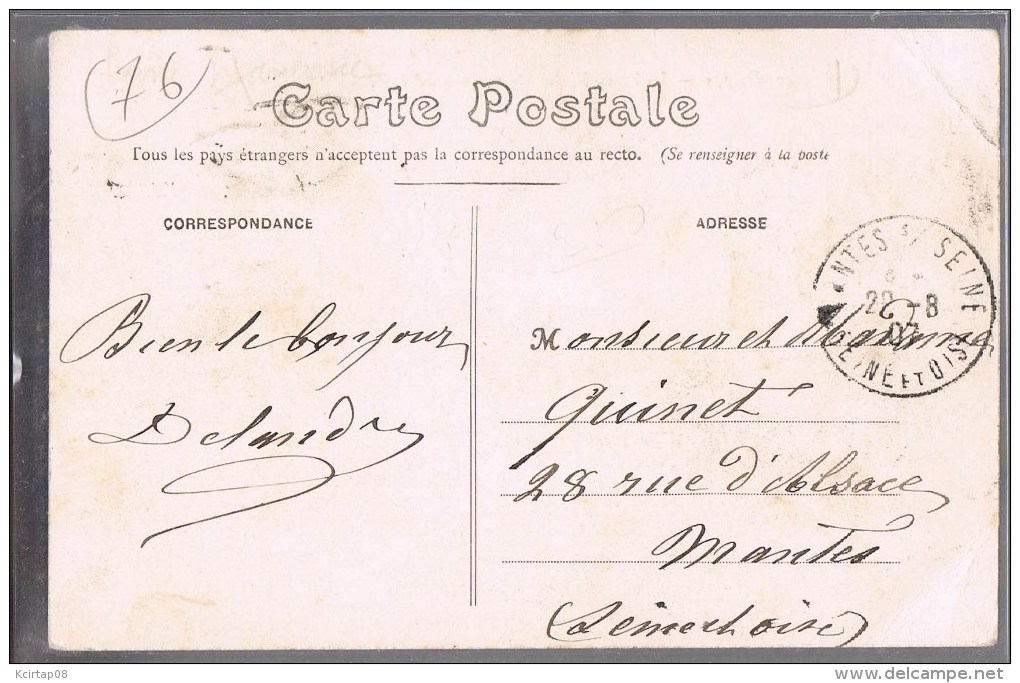 (76)
Carte Postale
Tous les pays étrangers n'acceptent pas la correspondance au recto. (Se renseigner à la poste
CORRESPONDANCE
ADRESSE
NTES S/ SEINE
-8
07
SEINE ET OISE
Bien le bonjour
Delandre
Monsieur et Madame
Quinet
28 rue d'Alsace
Mantes
(Seine et Oise)
Kcirtap08
delcampe.net